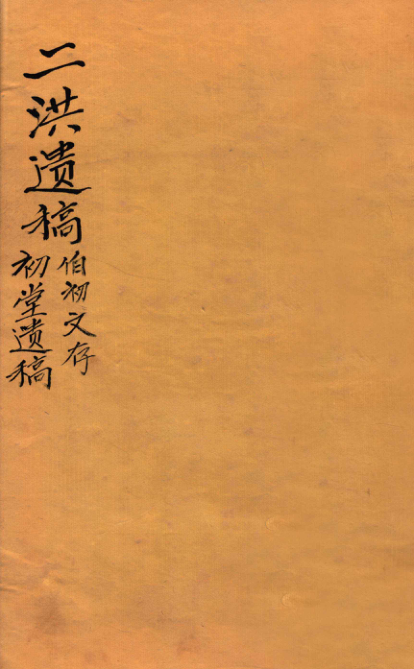 二洪遗稿
伯初文存
初堂遗稿